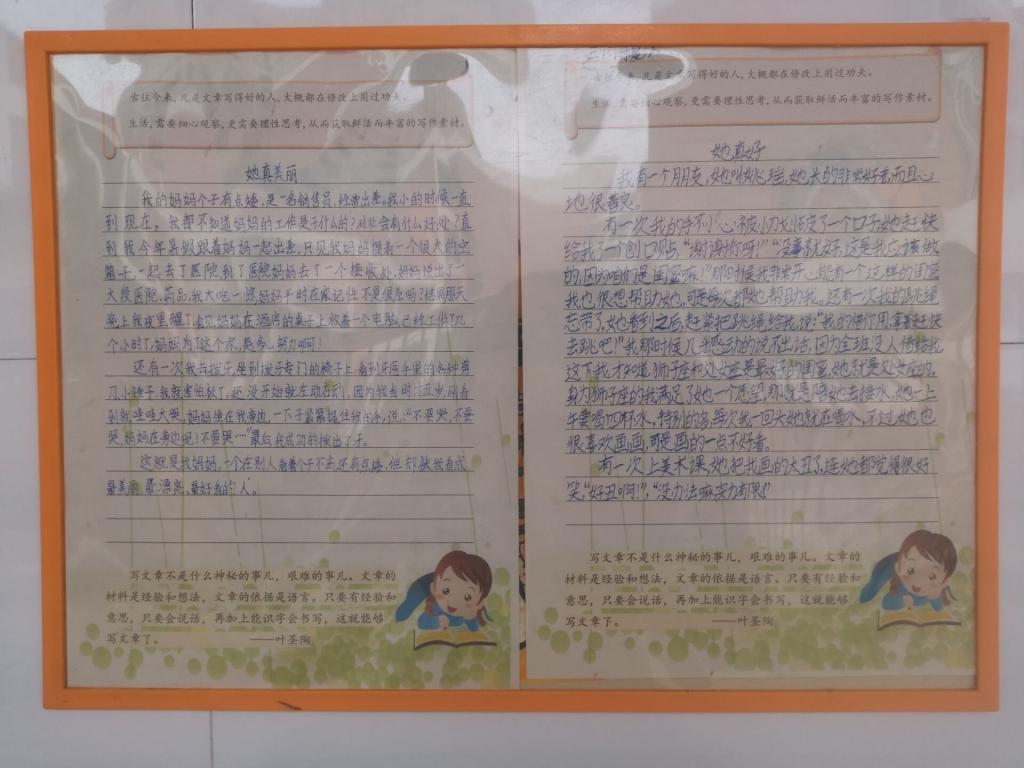 古往今来,凡是文章写得好的人,大概都在修改上用过功夫。
生活,需要细心观察,更需要理性思考,从而获取鲜活而丰富的写作素材。
她真美丽
我的妈妈个子有点矮,是一名销售员,经常出差。我小的时候一直
到现在,我都不知道妈妈的工作是干什么的?对社会有什么好处?直
到我今年暑假跟着妈妈一起出差,只见我妈妈提着一个很大的空
箱子,一起去了医院到了医院妈妈去了一个接收处,妈妈说出了一
大段医院,药品,我大吃一惊妈妈平时在家记性不是很差吗?结果那天
晚上我夜里醒了,看见妈妈在酒店的桌子上放着一个电脑,已经工作了几
个小时了,妈妈为了这个家,是多么努力啊!
还有一次我去拔牙,坐到拔牙专门的椅子上,看到牙医手里的各种剪
刀,小锤子,我就害怕极了,还没开始就左动右动,因为我当时才五岁,刚看
到就哇哇大哭,妈妈坐在我旁边,一下子紧紧握住我的手,说:“不要哭,不要
哭,妈妈在旁边呢!不要哭…”最后,我成功的拔出了牙。
这就是我妈妈,一个在别人看着个子不高,还有点矮,但却被我看成
最美丽,最漂亮,最好看的人。
写文章不是什么神秘的事儿,艰难的事儿。文章的
材料是经验和想法,文章的依据是语言。只要有经验和
意思,只要会说话,再加上能识字会书写,这就能够
写文章了。 ——叶圣陶
古往今来,凡是文章写得好的人,大概都在修改上用过功夫。
生活,需要细心观察,更需要理性思考,从而获取鲜活而丰富的写作素材。
她真好
我有一个朋友,她叫姚瑶,她长的非常好看而且心
地很善良。
有一次我的手不小心被小刀划破了一个口子,她赶快
给我了一个创口贴,“谢谢你呀!”“没事就好,这是我应该做
的,因为咱们是闺蜜嘛!”那时候我非常开心能有一个这样的闺蜜
我也很想帮助她,可是每次都她帮助我。还有一次我的跳绳
忘带了,她看到之后,赶紧把跳绳给我,说:“我的借你用,拿着赶快
去跳吧!”我那时候几乎感动的说不出话,因为全班没人借给我
这下我才知道,狮子座和处女座是最好的闺蜜,她就是处女座的,
身为狮子座的我满足了她一个愿望,那就是陪她去接水,她一上
午要喝四杯水,特别的多,每次我一回头她就在喝水,不过她也
很喜欢画画,可是画的一点不好看。
有一次上美术课,她把我画的太丑了,连她都觉得很好
笑,“好丑啊!”,“没办法嘛,实力有限!”
写文章不是什么神秘的事儿,艰难的事儿。文章的
材料是经验和想法,文章的依据是语言。只要有经验和
意思,只要会说话,再加上能识字会书写,这就能够
写文章了。 ——叶圣陶